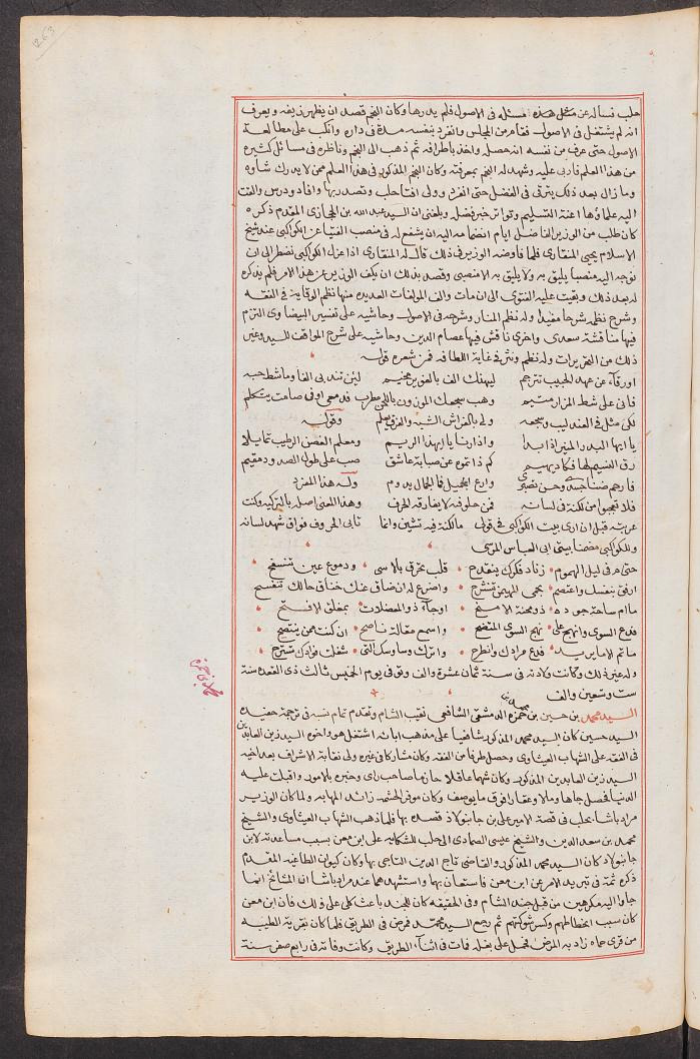 263
حلب فساله عن مثل هذه المسئله فى الاصول فلم يدرها وكان النجم قصد ان يظهر زيفه ويعرف
انه لم يشتغل فى الاصول فقام من المجلس وانفرد بنفسه مدة فى داره وانكب على مطالعة
الاصول حتى عرف من نفسه انه حصله واخذ باطرافه ثم ذهب الى النجم وناظره فى مسائل كثيره
من هذا العلم فاربى عليه وشهد له النجم بمعرفته وكان النجم المذكور فى هذا العلم ممن لا يدرك شاوه
وما زال بعد ذلك يترقى فى الفضل حتى انفرد وولى افتا حلب وتصدر بها وافاد ودرس والقت
اليه علماؤها اعنة التسليم وتواتر خبر فضله وبلغنى ان السيد عبد الله بن الحجازى المقدم ذكره
كان طلب من الوزير الفاضل ايام انضمامه اليه ان يشفع له فى منصب الفتيا عن الكواكبى عند شيخ
الاسلام يحيى المنقارى فلما فاوضه الوزير فى ذلك قال له المنقارى اذا عزل الكواكبى نضطر الى ان
نوجه اليه منصبا يليق به ولا يليق به الا منصبى وقصد بذلك ان يكف الوزير عن هذا الامر فلم يذكره
له بعد ذلك وبقيت عليه الفتوى الى ان مات والف المولفات العديده منها نظم الوقاية فى الفقه
وشرح نظمه شرحا مفيدا وله نظم المنار وشرحه فى الاصول وحاشيه على تفسير البيضاوى التزم
فيها مناقشة سعدى واخرى ناقش فيها عصام الدين وحاشيه على شرح المواقف للسيد وغير
ذلك من التحريرات وله نظم ونثر فى غاية اللطافه فمن شعره قوله
اورقآء عن عهد الحبيب تترجم ليهنك الف بالغوير مخيم لئن تندبى الفا وما شط حبه
فانى على شط المزار متيم وهب سجعك الموزون باللحن مطرب فدمعى اوفى صامت يتكلم
لكى مثل فى العندليب وسجعه ولى بالفراش الشبه والفرق يعلم وقوله
يا ايها البدر المنير اذا بدا واذا رنا يا ايهذا الريم ومعلم الغصن الرطيب تمايلا
رق النسيم لها فكاد يهيم كم ذا تموه عن صبابة عاشق صب على طول الصدود مقيم
فارحم ضنا جسدى وحسن تصبرى وارع الجميل فالجمال يدوم وله هذا المفرد
فلا تعجبوا من لكنة فى لسانه فمن حلو فيه لا يفارقه الحرف وهذا المعنى اصله بالتركيه وكنت
عربته قبل ان ارى بيت الكواكبى فى قولى ما لكنة فيه تشين وانما تابى الحروف فراق شهد لسانه
وللكواكبى مضمنا بيتى ابى العباس المرسى
حتى م فى ليل الهموم زناد فكرك ينقدح قلب تحرق بالاسى ودموع عين تنسفح
ارفق بنفسك واعتصم بحمى المهيمن تنشرح واضرع له ان ضاق عنك خناق حالك تنفسح
ما ام ساحة جوده ذو محنة الا منح او جآه ذو المعضلات بمغلق الا فتح
فدع السوى وانهج على نهج السوى المتضح واسمع مقالة ناصح ان كنت ممن ينتصح
ما تم الا ما يريد فدع مرادك وانطرح واترك وساوسك التى شغلت فوادك تسترح
وله غير ذلك وكانت ولادته فى سنة ثمان عشرة والف وتوفى يوم الخميس ثالث ذى القعده سنة
ست وتسعين والف
السيد محمد بن حسين بن محمد بن حمزه الدمشقى الشافعى نقيب الشام وتقدم تمام نسبه فى ترجمة حفيده
السيد حسين كان السيد محمد المذكور شافعيا على مذهب ابائه اشتغل هو واخوه السيد زين العابدين
فى الفقه على الشهاب العيثاوى وحصل طرفا من الفقه وكان مشاركا فى غيره وولى نقابة الاشراف بعد اخيه
السيد زين العابدين المذكور وكان شهما عاقلا حازما صاحب راى وخبره بالامور واقبلت عليه
الدنيا فحصل جاها ومالا وعقارا فوق ما يوصف وكان موفر الحشمه زائد المهابه ولما كان الوزير
مراد باشا بحلب فى قصة الامير على بن جانبولاذ قصده بها فلما ذهب الشهاب العيثاوى والشيخ
محمد بن سعد الدين والشيخ عيسى الصمادى الى حلب للشكايه على ابن معن بسبب مساعدته لابن
جانبولاد كان السيد محمد المذكور والقاضى تاج الدين التاجى بها وكان كيوان الطاغيه المقدم
ذكره ثمة فى تبريد الامر عن ابن معن فاستعان بها واستشهدهما عند مراد باشا ان المشايخ انما
جاوا اليه مكرهين من قبل جند الشام وفى الحقيقه كان للجند باعث كلى على ذلك فان ابن معن
كان سبب انحطاطهم وكسر شوكتهم ثم رجع السيد محمد فمرض فى الطريق فلما كان بقرية الطيبه
من قرى حماه زاد به المرض فحمل على بغله فمات فى اثنآء الطريق وكانت وفاته فى رابع صفر سنة